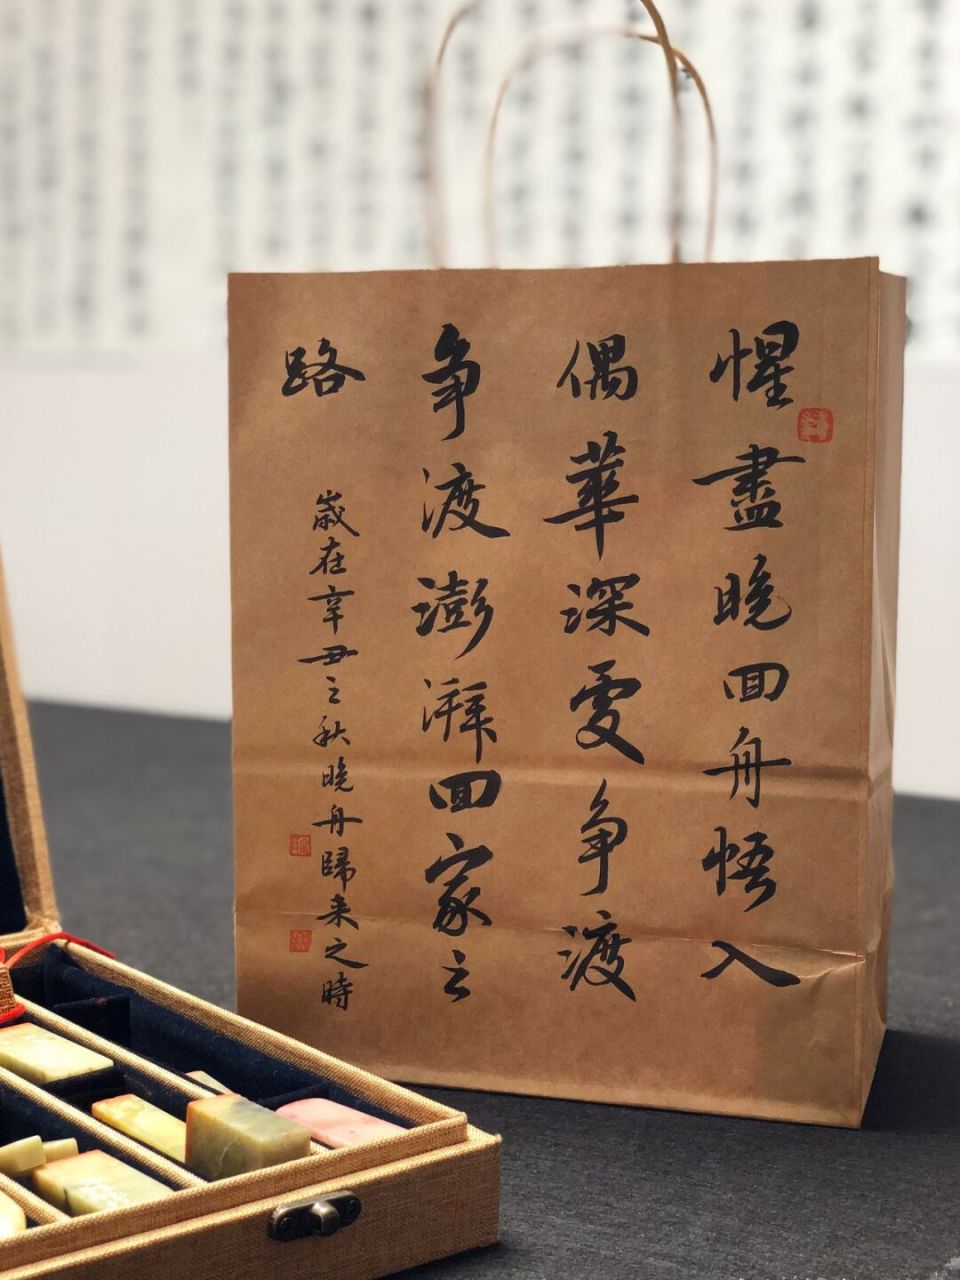 惺盡晚回舟悟入
偶華深處争渡
争渡澎湃回家之
路
歲在辛丑之秋晚舟歸来之時